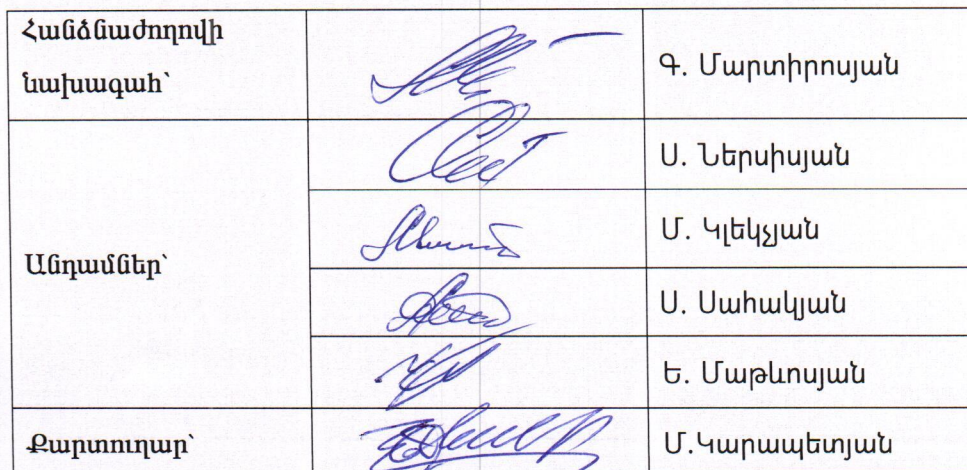 Հանձնաժողովի
նախագահ՝
Գ. Մարտիրոսյան
Ս. Ներսիսյան
Անդամներ՝
Մ. Կլեկչյան
Ս. Սահակյան
Ե. Մաթևոսյան
Քարտուղար՝
Մ.Կարապետյան